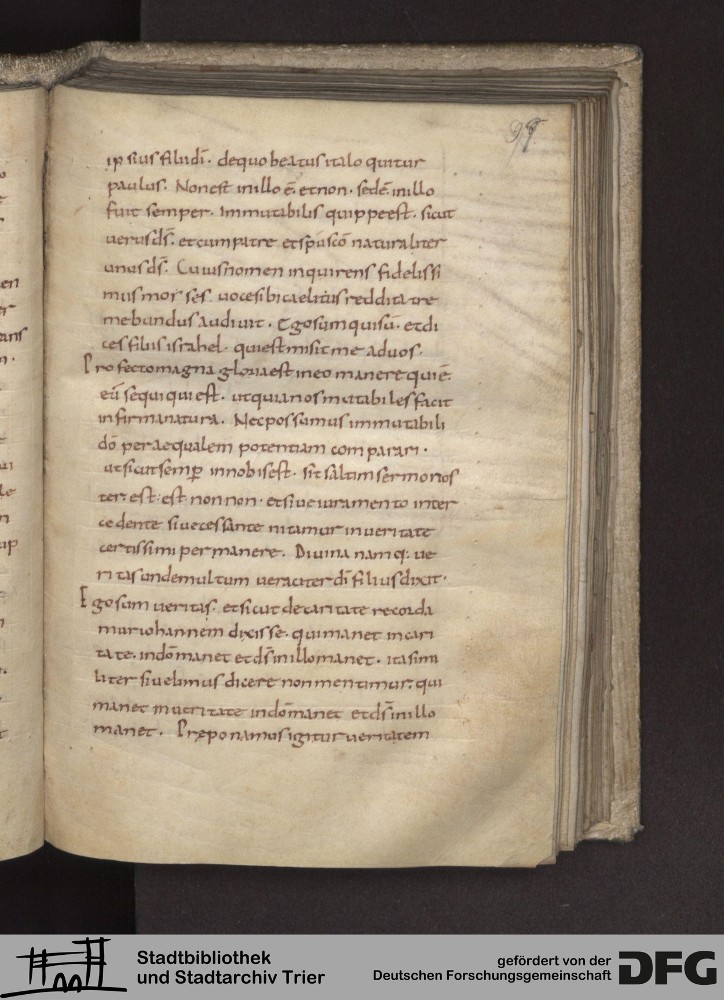 98
ipsius filii dī. de quo beatus ita loquitur
paulus. Non est in illo ē. et non. sed ē. in illo
fuit semper. Immutabilis quippe est. sicut
uerus ds̄. et cum patre et spū scō naturaliter
unus ds̄. Cuius nomen inquirens fidelissi
mus moyses. uocesibi caelitus reddita tre
mebundus audiuit. Ego sum qui sū. et di
ces filiis israhel. qui est misit me ad uos.
Profecto magna gloria est in eo manere qui ē.
eū sequi qui est. ut quia nos mutabiles facit
infirma natura. Nec possumus immutabili
dō per aequalem potentiam comparari.
ut sicut semp̄ in nobis est. sit saltim sermo nos
ter. est. est non non. et siue iuramento inter
cedente siue cessante nitamur in ueritate
certissimi permanere. Diuina namq; ue
ritas unde multum ueraciter dī filius dixit.
Ego sum ueritas. et sicut de caritate recorda
mur iohannem dixisse. qui manet in cari
tate. in dō manet et ds̄ in illo manet. ita simi
liter si uelimus dicere non mentimur. qui
manet in ueritate in dō manet et ds̄ in illo
manet. Praeponamus igitur ueritatem
Stadtbibliothek
und Stadtarchiv Trier
gefördert von der
Deutschen Forschungsgemeinschaft
DFG